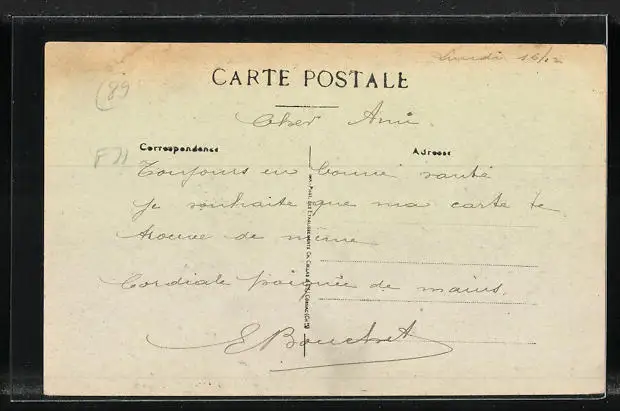 Lundi 16/12
CARTE POSTALE
(89
Cher Ami
Correspondance
Adresse
F71
Toujours en bonne santé
je souhaite que ma carte te
trouve de même
Cordiale poignée de mains.
E Bouchet